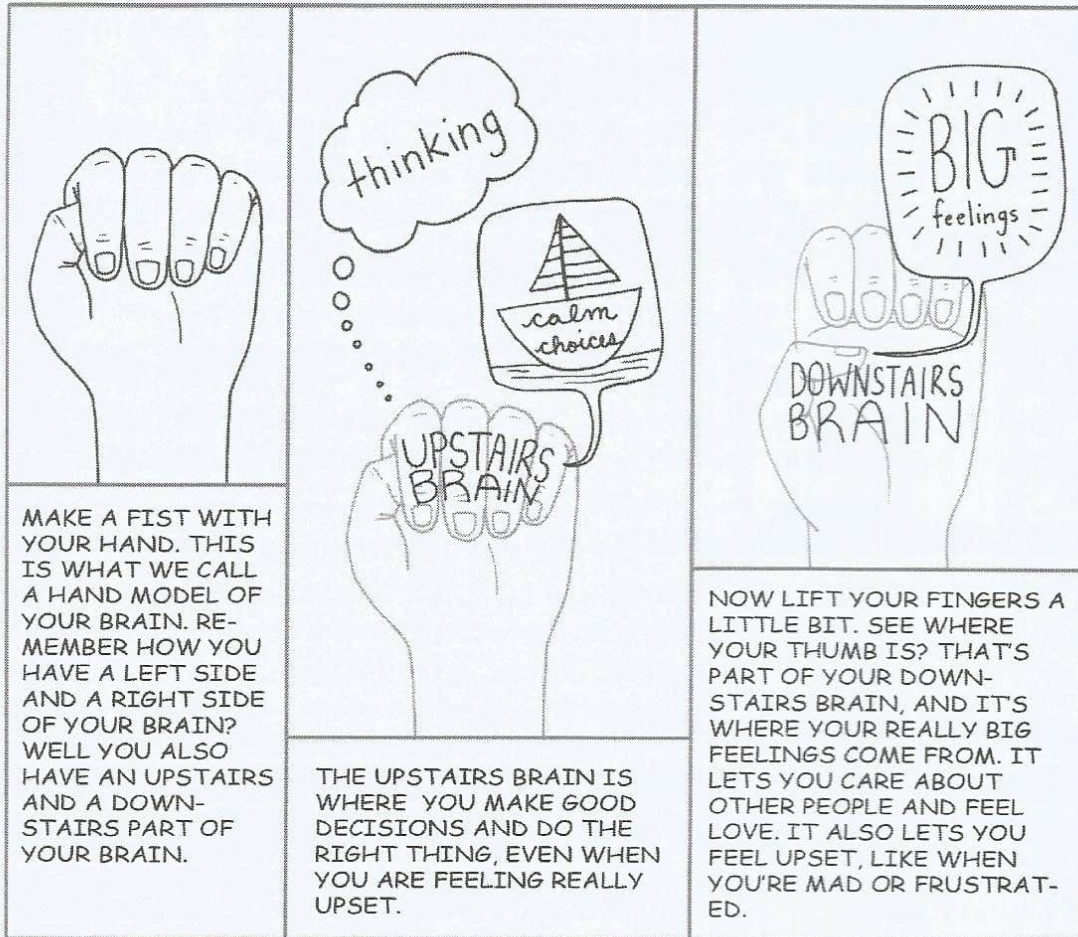 MAKE A FIST WITH
YOUR HAND. THIS
IS WHAT WE CALL
A HAND MODEL OF
YOUR BRAIN. RE-
MEMBER HOW YOU
HAVE A LEFT SIDE
AND A RIGHT SIDE
OF YOUR BRAIN?
WELL YOU ALSO
HAVE AN UPSTAIRS
AND A DOWN-
STAIRS PART OF
YOUR BRAIN.
thinking
calm
choices
UPSTAIRS
BRAIN
THE UPSTAIRS BRAIN IS
WHERE YOU MAKE GOOD
DECISIONS AND DO THE
RIGHT THING, EVEN WHEN
YOU ARE FEELING REALLY
UPSET.
BIG
feelings
DOWNSTAIRS
BRAIN
NOW LIFT YOUR FINGERS A
LITTLE BIT. SEE WHERE
YOUR THUMB IS? THAT'S
PART OF YOUR DOWN-
STAIRS BRAIN, AND IT'S
WHERE YOUR REALLY BIG
FEELINGS COME FROM. IT
LETS YOU CARE ABOUT
OTHER PEOPLE AND FEEL
LOVE. IT ALSO LETS YOU
FEEL UPSET, LIKE WHEN
YOU'RE MAD OR FRUSTRAT-
ED.